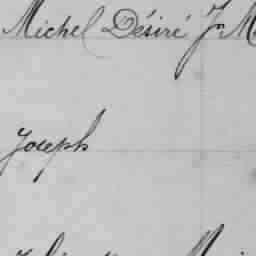 Michel Désiré J. M
Joseph